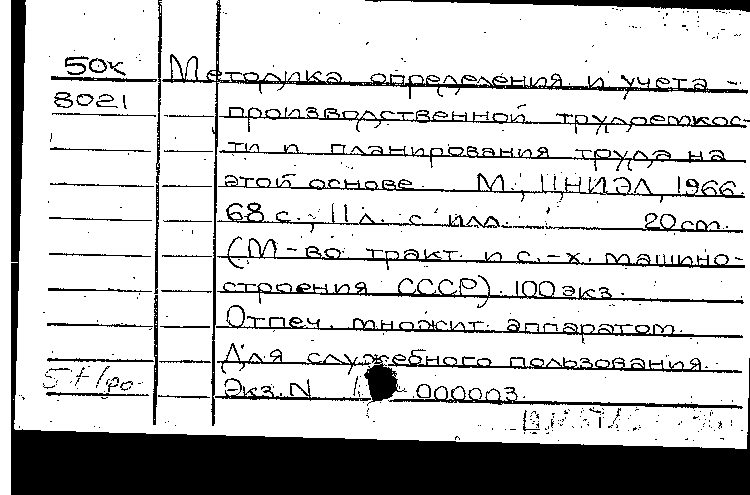 50к Методика определения и учета -
8021 производственной трудоемкос-
ти и планирования труда на
этой основе. М., ЦНИЭЛ, 1966.
68 с., 11 л. с илл. 20 cm.
(М-во тракт. и с.-х. машино-
строения СССР). 100 экз.
Отпеч. множит. аппаратом.
Для служебного пользования.
Экз. N 000003.